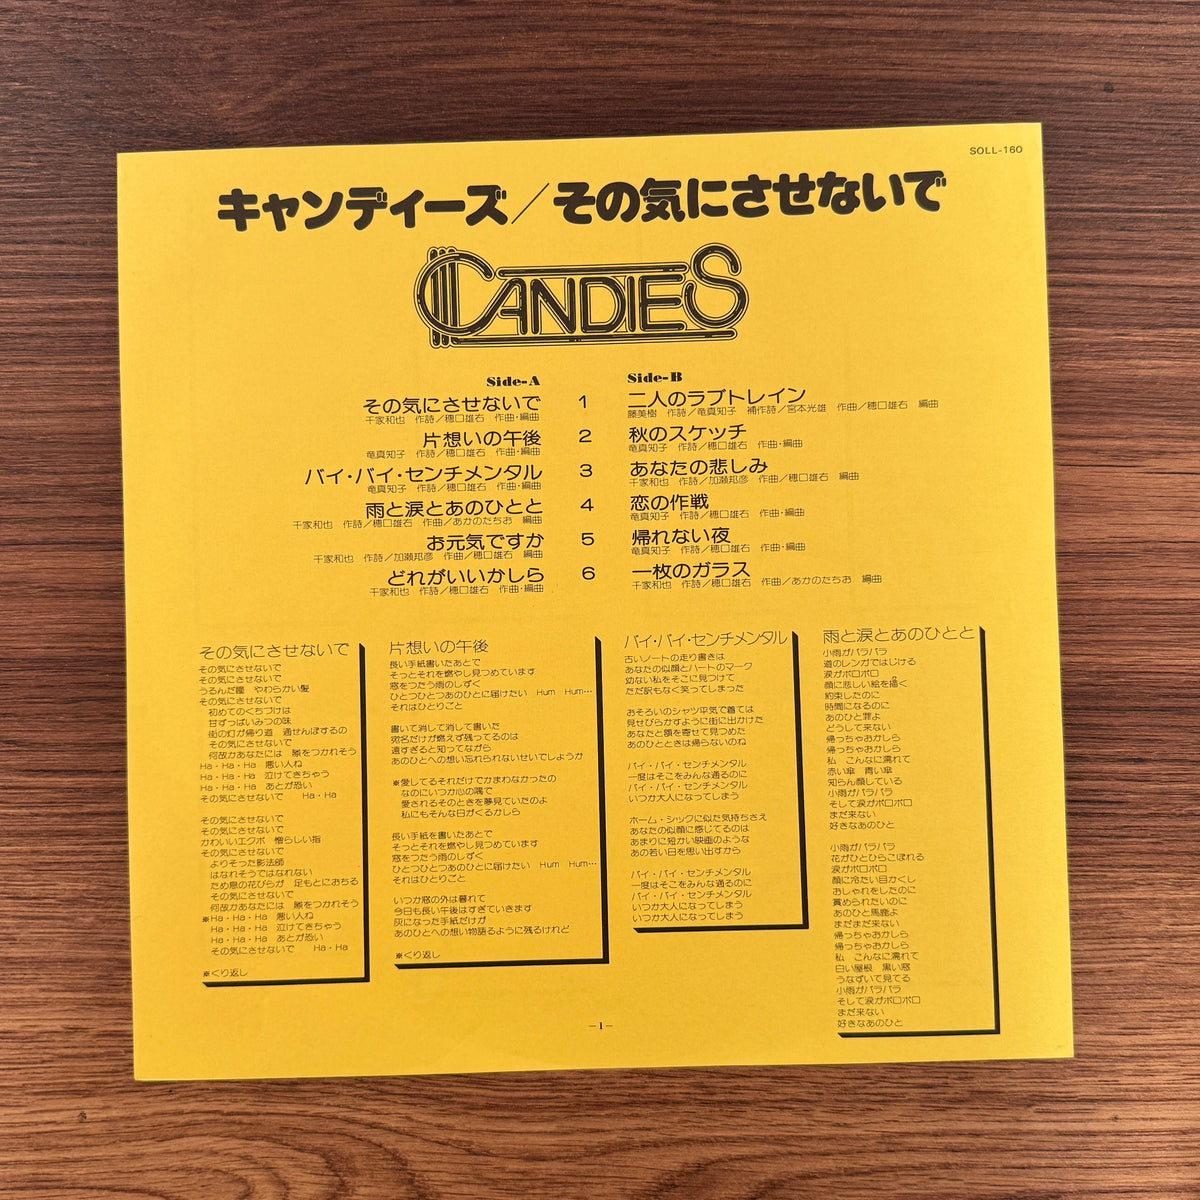 SOLL-160
キャンディーズ／その気にさせないで
CANDIES
Side-A
その気にさせないで 1
千家和也 作詩／穂口雄右 作曲・編曲
片想いの午後 2
竜真知子 作詩／穂口雄右 作曲・編曲
バイ・バイ・センチメンタル 3
竜真知子 作詩／穂口雄右 作曲・編曲
雨と涙とあのひとと 4
千家和也 作詩／穂口雄右 作曲／あかのたちお 編曲
お元気ですか 5
千家和也 作詩／加瀬邦彦 作曲／穂口雄右 編曲
どれがいいかしら 6
千家和也 作詩／穂口雄右 作曲・編曲
Side-B
二人のラブトレイン
藤美樹 作詩／竜真知子 補作詩／宮本光雄 作曲／穂口雄右 編曲
秋のスケッチ
竜真知子 作詩／穂口雄右 作曲・編曲
あなたの悲しみ
千家和也 作詩／加瀬邦彦 作曲／穂口雄右 編曲
恋の作戦
竜真知子 作詩／穂口雄右 作曲・編曲
帰れない夜
竜真知子 作詩／穂口雄右 作曲・編曲
一枚のガラス
千家和也 作詩／穂口雄右 作曲／あかのたちお 編曲
その気にさせないで
その気にさせないで
その気にさせないで
うるんだ瞳 やわらかい髪
その気にさせないで
初めてのくちづけは
甘ずっぱいみつの味
街の灯が帰り道 通せんぼするの
その気にさせないで
何故かあなたには 隙をつかれそう
Ha・Ha・Ha 悪い人ね
Ha・Ha・Ha 泣けてきちゃう
Ha・Ha・Ha あとが恐い
その気にさせないで Ha・Ha
その気にさせないで
その気にさせないで
かわいいエクボ 憎らしい指
その気にさせないで
よりそった影法師
はなれそうではなれない
ため息の花びらが 足もとにおちる
その気にさせないで
何故かあなたには 隙をつかれそう
※Ha・Ha・Ha 悪い人ね
Ha・Ha・Ha 泣けてきちゃう
Ha・Ha・Ha あとが恐い
その気にさせないで Ha・Ha
※くり返し
片想いの午後
長い手紙書いたあとで
そっとそれを燃やし見つめています
窓をつたう雨のしずく
ひとつひとつあのひとに届けたい Hum Hum…
それはひとりごと
書いて消して消して書いた
宛名だけが燃えず残ってるのは
遠すぎると知ってながら
あのひとへの想い忘れられないせいでしょうか
※愛してるそれだけでかまわなかったの
なのにいつか心の隅で
愛されるそのときを夢見ていたのよ
私にもそんな日がくるかしら
長い手紙を書いたあとで
そっとそれを燃やし見つめています
窓をつたう雨のしずく
ひとつひとつあのひとに届けたい Hum Hum…
それはひとりごと
いつか窓の外は暮れて
今日も長い午後はすぎていきます
灰になった手紙だけが
あのひとへの想い物語るように残るけれど
※くり返し
バイ・バイ・センチメンタル
古いノートの走り書きは
あなたの似顔とハートのマーク
幼ない私をそこに見つけて
ただ訳もなく笑ってしまった
おそろいのシャツ平気で着ては
見せびらかすように街に出かけた
あなたと額を寄せて見つめた
あのひとときは帰らないのね
バイ・バイ・センチメンタル
一度はそこをみんな通るのに
バイ・バイ・センチメンタル
いつか大人になってしまう
ホーム・シックに似た気持ちさえ
あなたの似顔に感じてるのは
あまりに短かい映画のような
あの若い日を思い出すから
バイ・バイ・センチメンタル
一度はそこをみんな通るのに
バイ・バイ・センチメンタル
いつか大人になってしまう
いつか大人になってしまう
雨と涙とあのひとと
小雨がパラパラ
道のレンガではじける
涙がポロポロ
顔に悲しい絵を描く
約束したのに
時間になるのに
あのひと罪よ
どうして来ない
帰っちゃおかしら
帰っちゃおかしら
私 こんなに濡れて
赤い傘 青い傘
知らん顔している
小雨がパラパラ
そして涙がポロポロ
まだ来ない
好きなあのひと
小雨がパラパラ
花がひとひらこぼれる
涙がポロポロ
顔に冷たい目かくし
おしゃれをしたのに
賞められたいのに
あのひと馬鹿よ
まだまだ来ない
帰っちゃおかしら
帰っちゃおかしら
私 こんなに濡れて
白い屋根 黒い窓
うなずいて見てる
小雨がパラパラ
そして涙がポロポロ
まだ来ない
好きなあのひと
－1－